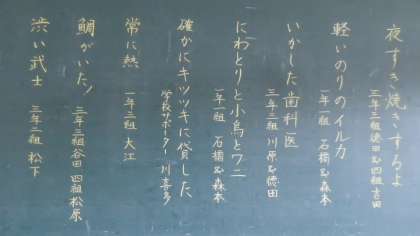 夜すき焼きするよ
三年三組徳田&四組吉田
軽いのりのイルカ
一年一組 石橋&森本
いかした歯科医
三年三組 川原&徳田
にわとりと小鳥とワニ
一年一組 石橋&森本
確かにキツツキに貸した
学校サポーター 川喜多
常に熱
一年三組 大江
鯛がいた!
三年三組谷田 四組松原
渋い武士
三年二組 松下